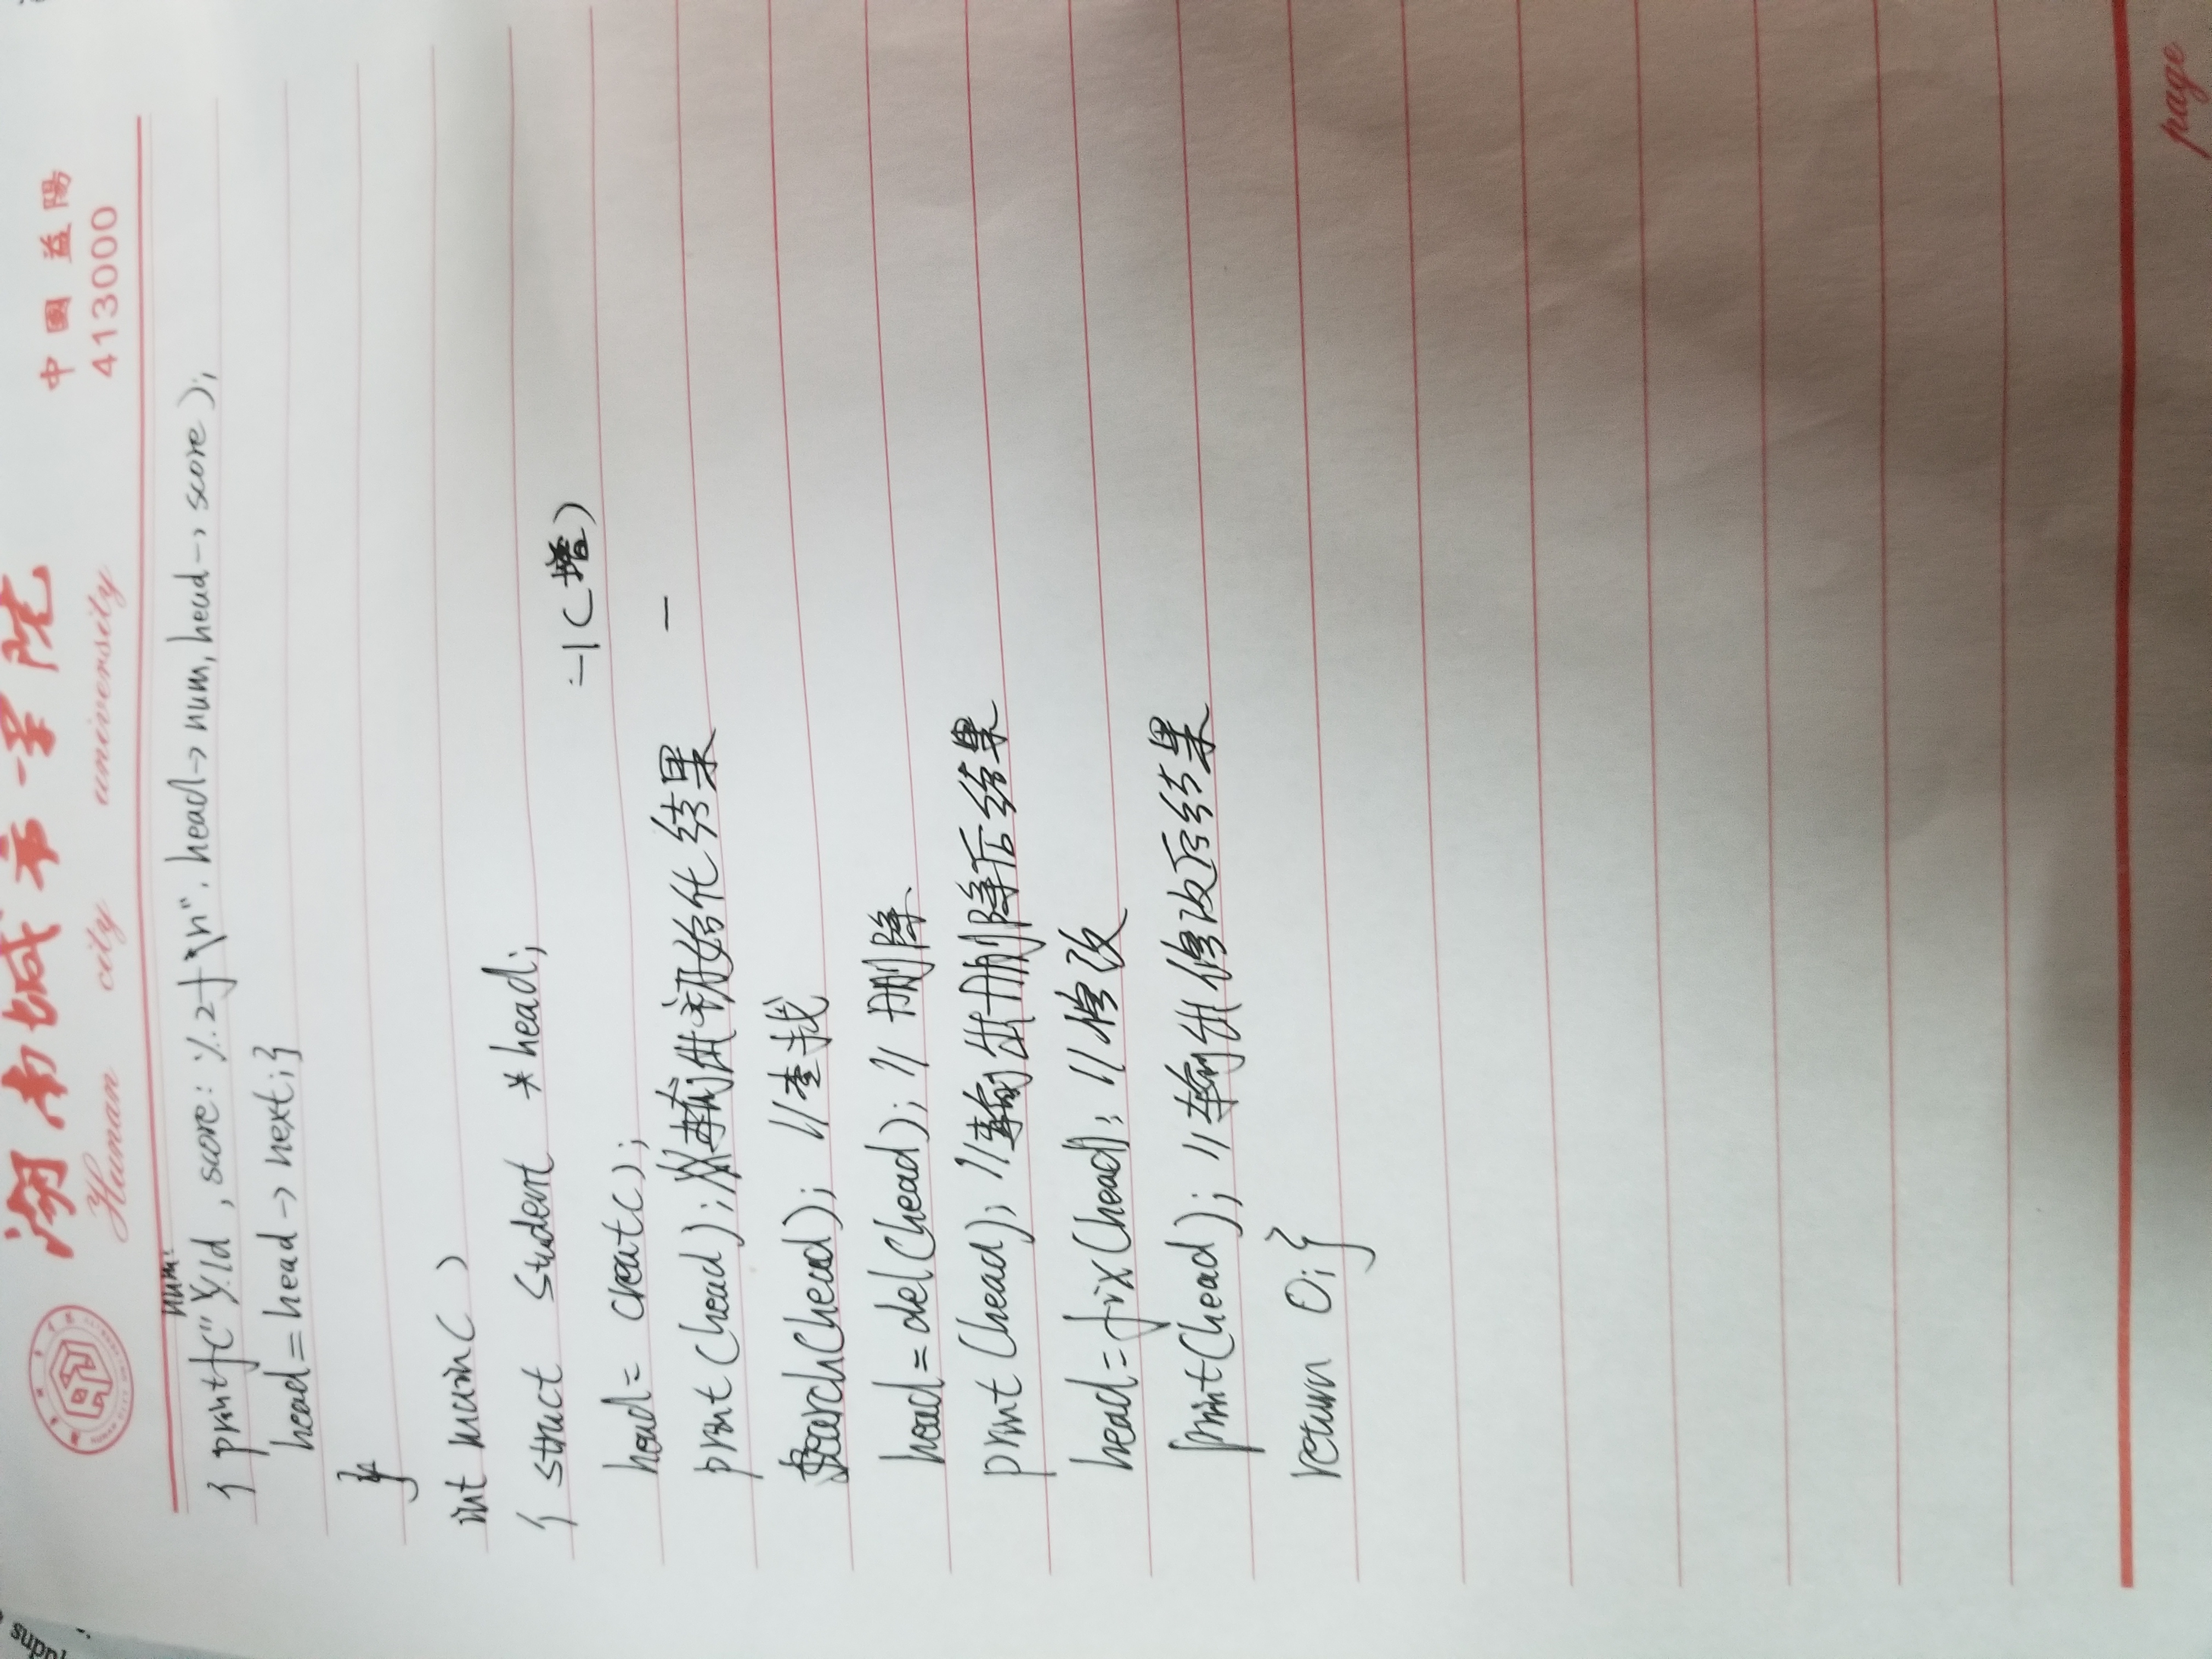 湖南城市学院
Hunan city university
中國 益陽
413000
num:
{ printf("%ld , score: %.2f\n", head→num, head→score);
head=head→next;}
}
int main( )
{ struct Student *head;
-1(增)
head= creat();
—
print(head); //输出初始化结果
Search(head); //查找
head=del(head); //删除
print(head); //输出删除后结果
head=fix(head); //修改
print(head); //输出修改后结果
return 0;}
page